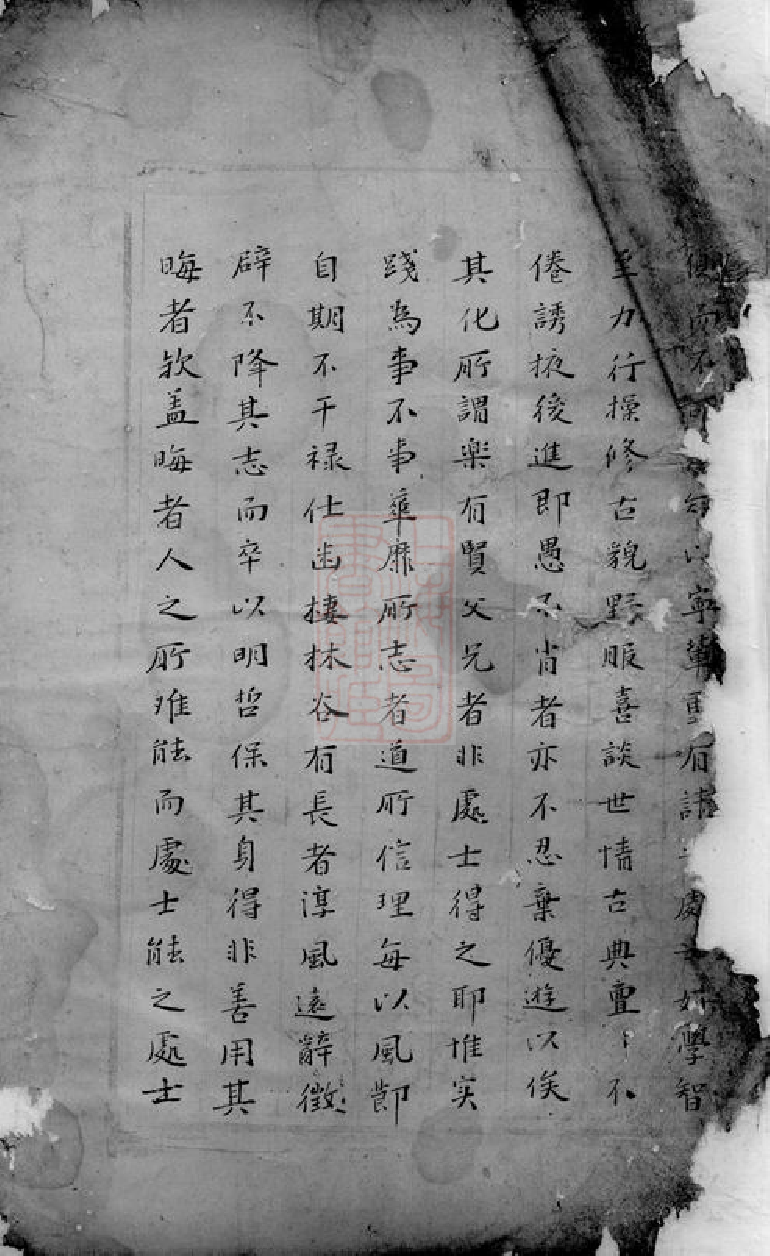 而不以寧有好學智
至力行操修古貌野服喜談世情古典亹〻不
倦誘掖後進即愚不肖者亦不忍棄優遊以俟
其化所謂楽有賢父兄者非處士得之耶惟实
踐為事不事華靡所志者道所信理每以風節
自期不干禄仕幽棲林谷有長者淳風遠辭徵
辟不降其志而卒以明哲保其身得非善用其
晦者欤盖晦者人之所难能而處士能之處士